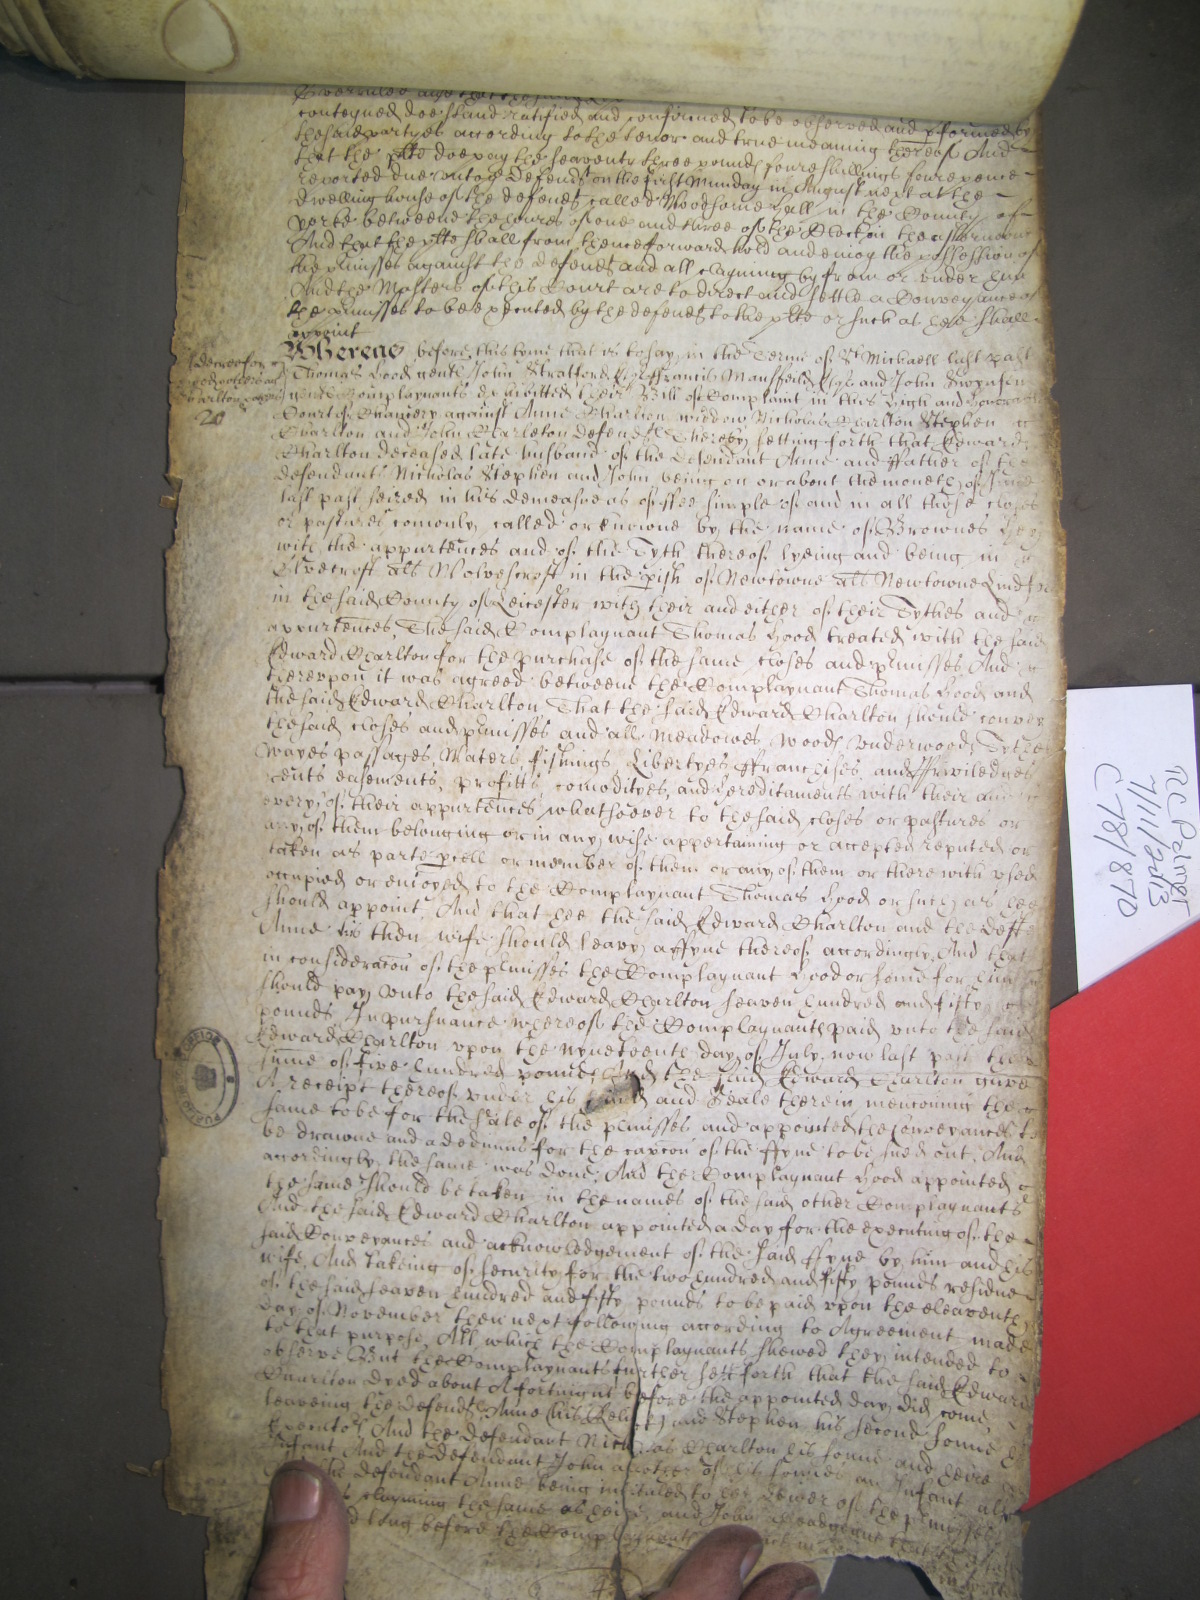 conteyned doe stand ratified and confirmed to be observed and pformed by
the said partyes according to the tenor and true meaning thereof And
that the plte doe pay the seaventy three pounds foure shillings foure pence
reported due unto the Defendt on the first Munday in August next at the
dwelling house of the defendt called Woodsome Hall in the County of
Yorke betweene the houres of one and three of the Clock in the afternoone
And that the plte shall from thenceforward hold and enioy the possession of
the pmisses against the defendt and all clayming by from or under him
And the Masters of this Court are to direct and settle a Conveyance of
the pmisses to bee executed by the defendt to the plte or such as hee shall
appoint
Whereas before this tyme that is to say in the Terme of St Michaell last past
Thomas Hood gent John Stratford Esq ffrancis Mansfeild Esq and John
gent Complaynants exhibited their Bill of Complaint in this High and Honorable
Court of Chancery against Anne Charlton widow Nicholas Charlton Stephen
Charlton and John Charleton defendts Thereby setting forth that Edward
Charlton deceased late husband of the Defendant Anne and ffather of the
defendants Nicholas Stephen and John being on or about the moneth of June
last past seized in his demeasne as of ffee simple of and in all those closes
or pastures comonly called or knowne by the name of Brownes
with the appurtences and of the Tyth thereof lyeing and being in
Ulvecroft als Wolvescroft in the pish of Newtowne als Newtowne Lindford
in the said County of Leicester with their and either of their Tythes and
appurtences, The said Complaynant Thomas Hood treated with the said
Edward Charlton for the purchase of the same closes and pmisses And
thereupon it was agreed betweene the Complaynant Thomas Hood and
the said Edward Charlton That the said Edward Charlton should convey
the said closes and pmisses and all Meadowes Woods Underwoods Tythes
wayes passages, Waters fishings, Libertyes ffranchises, and Priviledges
rents easements, profitts, comodityes, and hereditaments with their and
every of their appurtences whatsoever to the said closes or pastures or
any of them belonging or in any wise appertaining or accepted reputed or
taken as parte pcell or member of them or any of them or therewith used
occupied or enioyed to the Complaynant Thomas Hood or such as hee
should appoint, And that hee the said Edward Charlton and the Defft
Anne his then wife should leavy a ffyne thereof accordingly, And that
in consideracon of the pmisses the Complaynant Hood or some for him
should pay unto the said Edward Charlton seaven hundred and fifty
pounds In pursuance whereof the Complaynants paid unto the said
Edward Charlton upon the nyneteenth day of July now last past the
summe of five hundred pounds And the said Edward Charlton gave
A receipt thereof under his hand and Seale therein mencioning the
same to be for the sale of the pmisses and appointed the conveyances to
be drawne and a dedimus for the capcon of the ffyne to be sued out. And
accordingly the same was done, And the Complaynant Hood appointed
the same should be taken in the names of the said other Complaynants
And the said Edward Charlton appointed a day for the executing of the
said Conveyances and acknowledgement of the said ffyne by him and his
wife, And takeing of security for the two hundred and fifty pounds residue
of the said seaven hundred and fifty pounds to be paid upon the eleaventh
day of November then next following according to Agreement made
to that purpose, All which the Complaynants shewed they intended to
observe But the Complaynants further sett forth that the said Edward
Charlton dyed about A fortnight before the appointed day did come
leaveing the defendt Anne (his Relict) and Stephen his second sonne his
Executor And the defendant Nicholas Charlton his sonne and heire
Infant And the defendant John another of his sonnes an Infant also
the defendant Anne being intituled to her Dower of the pmisses
clayming the same as heire, and John
long before the Complaynants
A decree for
20
RC Palmer
7/11/2013
C78/870